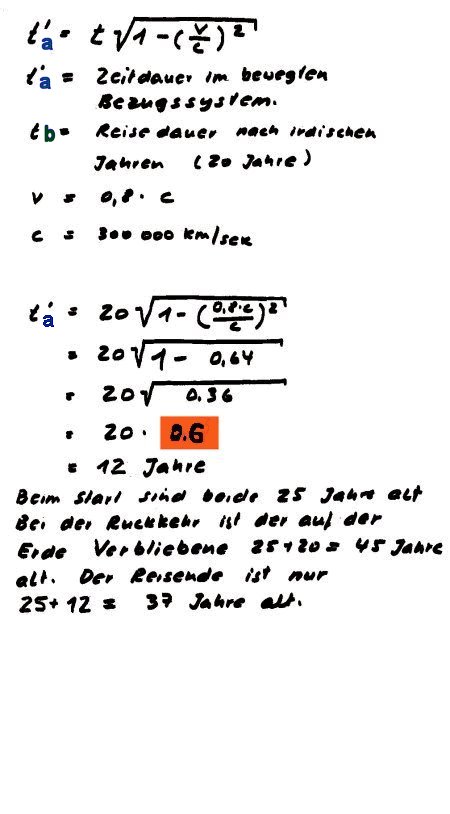 t'a = t √1-(v/c)²
t'a = Zeitdauer im bewegten
Bezugssystem.
tb = Reisedauer nach irdischen
Jahren (20 Jahre)
v = 0,8 · c
c = 300 000 km/sek
t'a = 20 √1-(0,8·c/c)²
= 20 √1 - 0,64
= 20 √0.36
= 20 · 0.6
= 12 Jahre
Beim Start sind beide 25 Jahre alt
Bei der Ruckkehr ist der auf der
Erde Verbliebene 25+20 = 45 Jahre
alt. Der Reisende ist nur
25+12 = 37 Jahre alt.